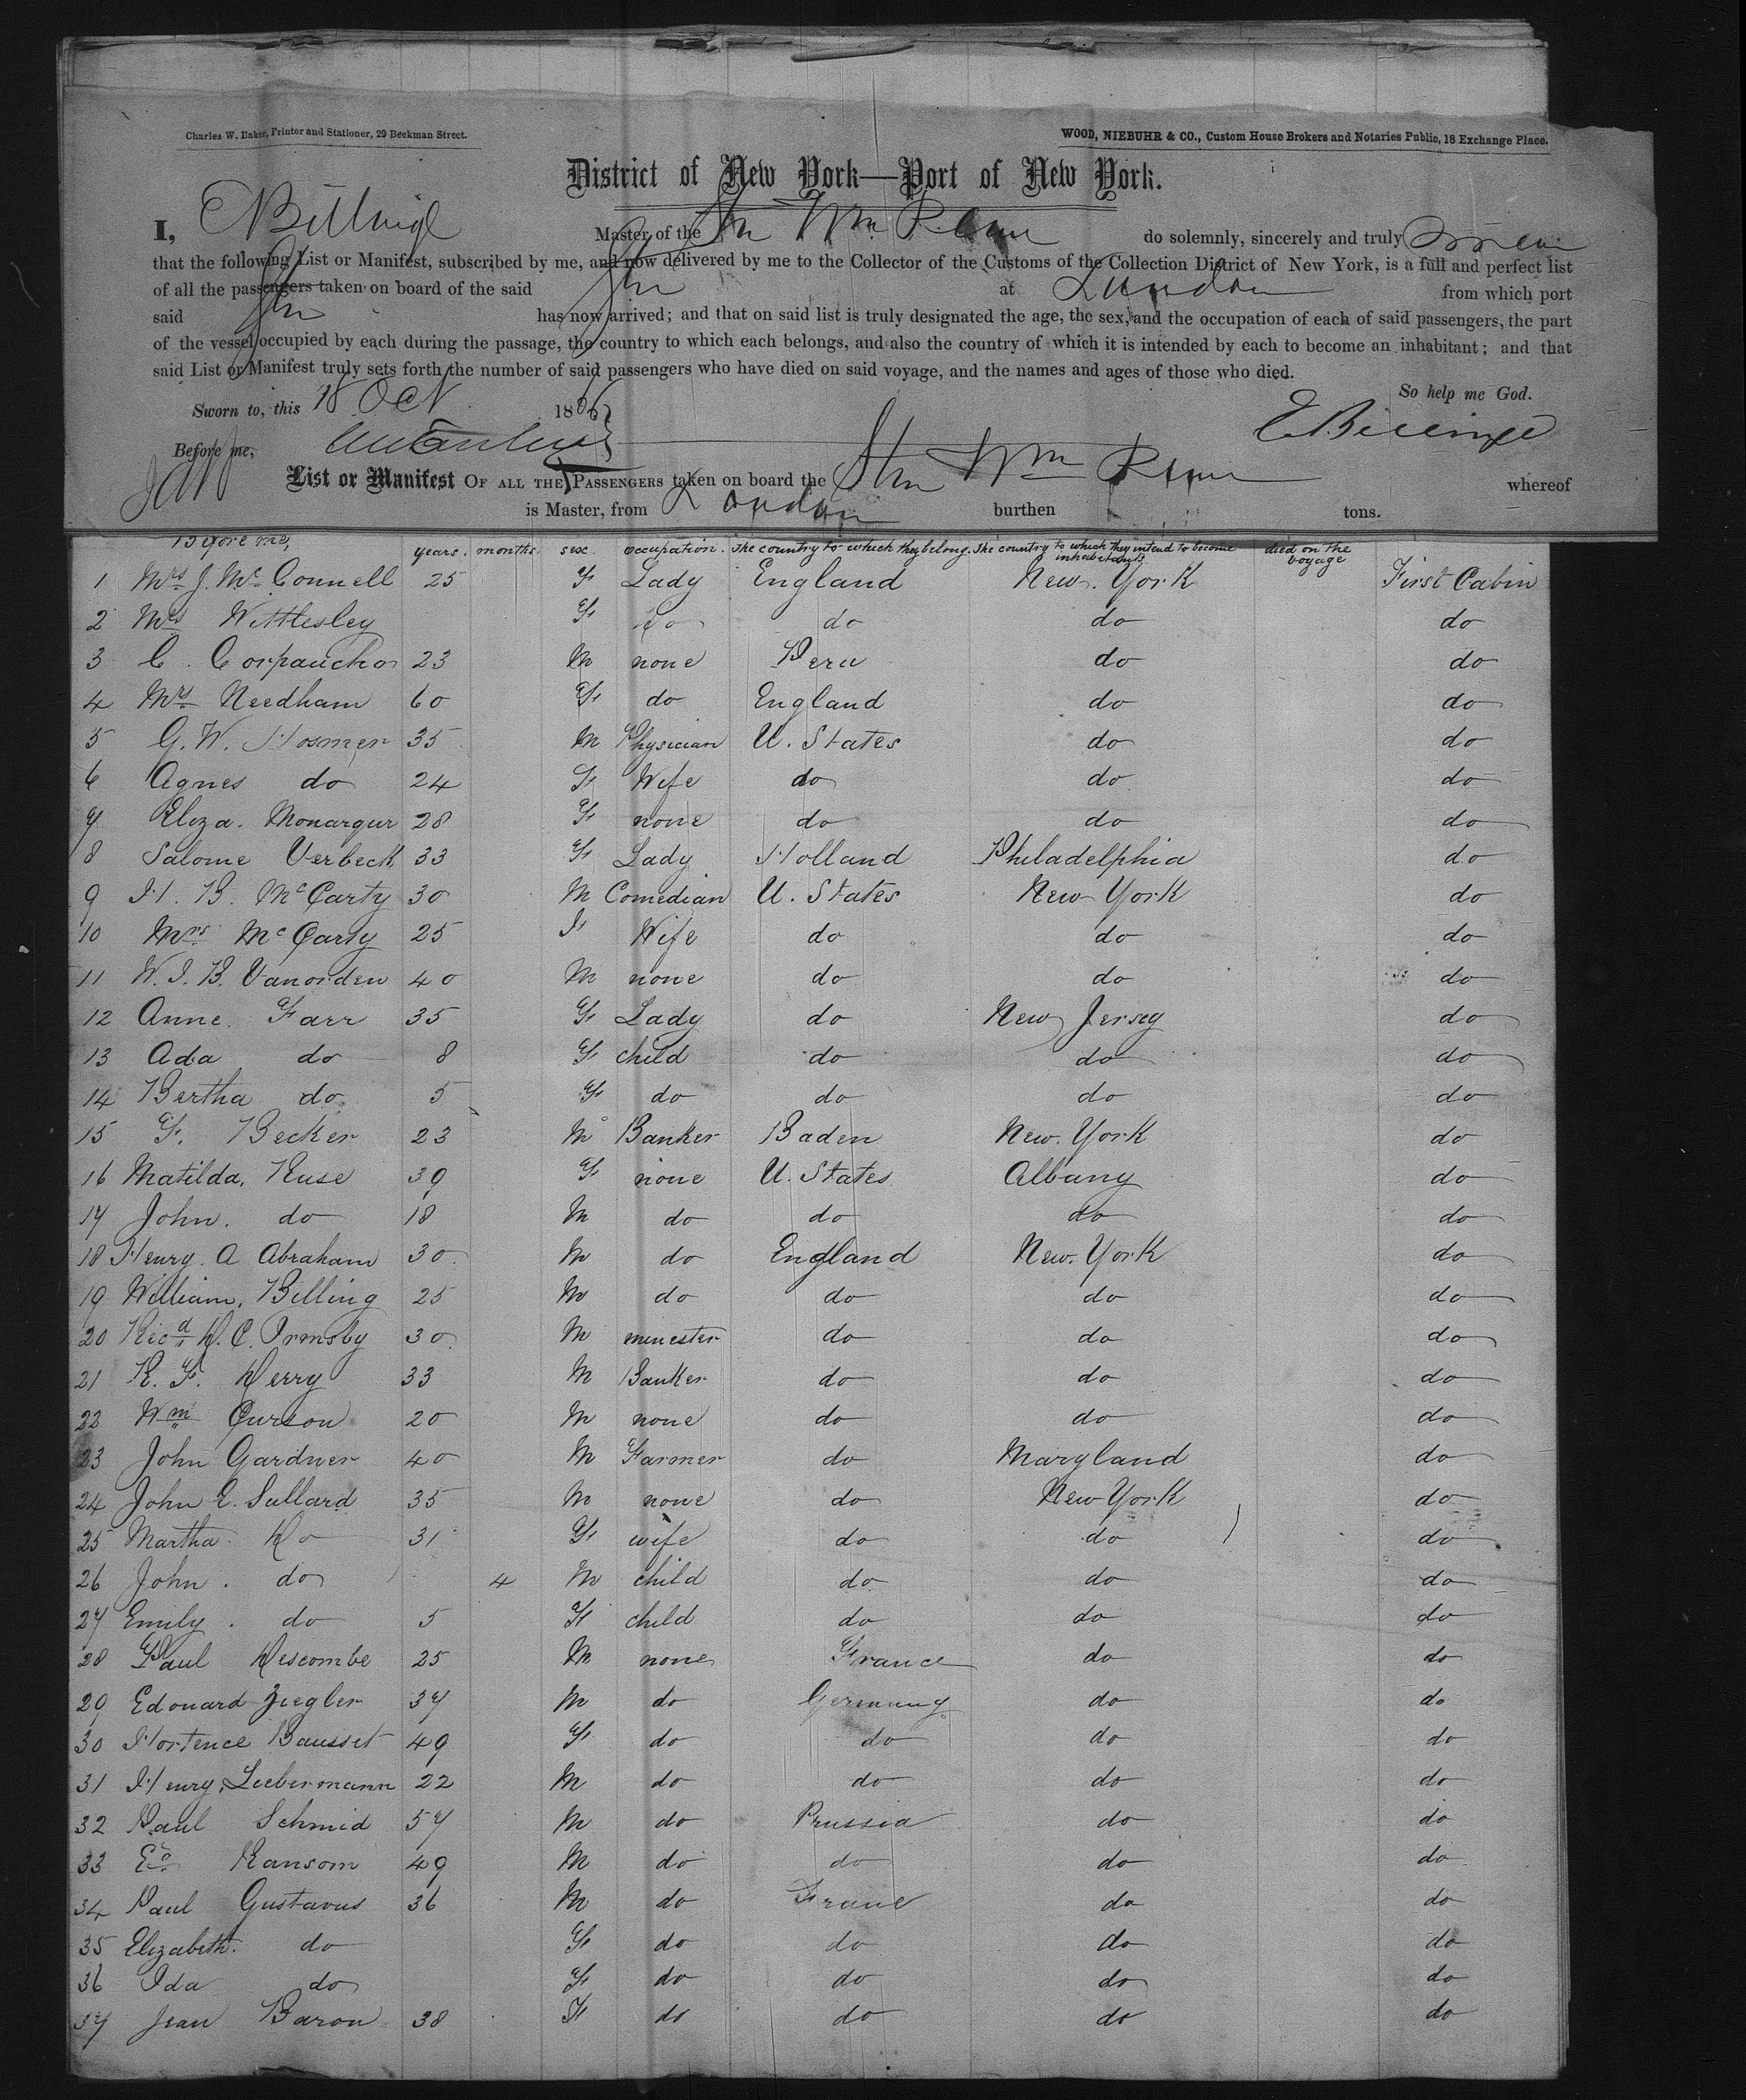 Charles W. Baker, Printer and Stationer, 29 Beekman Street.
WOOD, NIEBUHR & CO., Custom House Brokers and Notaries Public, 18 Exchange Place.
District of New York—Port of New York.
I, Master of the Str Wm Penn do solemnly, sincerely and truly swear
that the following List or Manifest, subscribed by me, and now delivered by me to the Collector of the Customs of the Collection District of New York, is a full and perfect list
of all the passengers taken on board of the said Str at London from which port
said Str has now arrived; and that on said list is truly designated the age, the sex, and the occupation of each of said passengers, the part
of the vessel occupied by each during the passage, the country to which each belongs, and also the country of which it is intended by each to become an inhabitant; and that
said List or Manifest truly sets forth the number of said passengers who have died on said voyage, and the names and ages of those who died.
So help me God.
Sworn to, this 18 Oct 186
Before me,
List or Manifest OF ALL THE PASSENGERS taken on board the Str Wm Penn whereof
is Master, from London burthen tons.
Before me,
years. months. sex occupation. The country to which they belong. The country to which they intend to become inhabitants died on the voyage
1 Mrs J. McConnell 25 F Lady England New York First Cabin
2 Mrs Wittlesley F do do do do
3 C. Corpancho 23 M none Peru do do
4 Mrs Needham 60 F do England do do
5 G. W. Hosmer 35 M Physician U. States do do
6 Agnes do 24 F Wife do do do
7 Eliza. Monargur 28 F none do do do
8 Salome Verbeck 33 F Lady Holland Philadelphia do
9 H. B. McCarty 30 M Comedian U. States New York do
10 Mrs McCarty 25 F Wife do do do
11 W. I. B. Vanorden 40 M none do do do
12 Anne. Farr 35 F Lady do New Jersey do
13 Ada do 8 F child do do do
14 Bertha do 5 F do do do do
15 F. Becker 23 M Banker Baden New York do
16 Matilda. Ruse 39 F none U. States Albany do
17 John. do 18 M do do do do
18 Henry. A Abraham 30 M do England New York do
19 William. Billing 25 M do do do do
20 Ricd D. C. Ormsby 30 M minester do do do
21 R. F. Derry 33 M Banker do do do
22 Wm Curzon 20 M none do do do
23 John Gardner 40 M Farmer do Maryland do
24 John E. Sullard 35 M none do New York do
25 Martha. Do 31 F wife do do do
26 John. do 4 M child do do do
27 Emily. do 5 F child do do do
28 Paul Descombe 25 M none France do do
29 Edouard Ziegler 37 M do Germany do do
30 Hortence Bausset 49 F do do do do
31 Henry. Leebermann 22 M do do do do
32 Paul Schmid 57 M do Prussia do do
33 Ransom 49 M do do do do
34 Paul Gustavus 36 M do France do do
35 Elizabeth. do F do do do do
36 Ida do F do do do do
37 Jean Baron 38 F do do do do